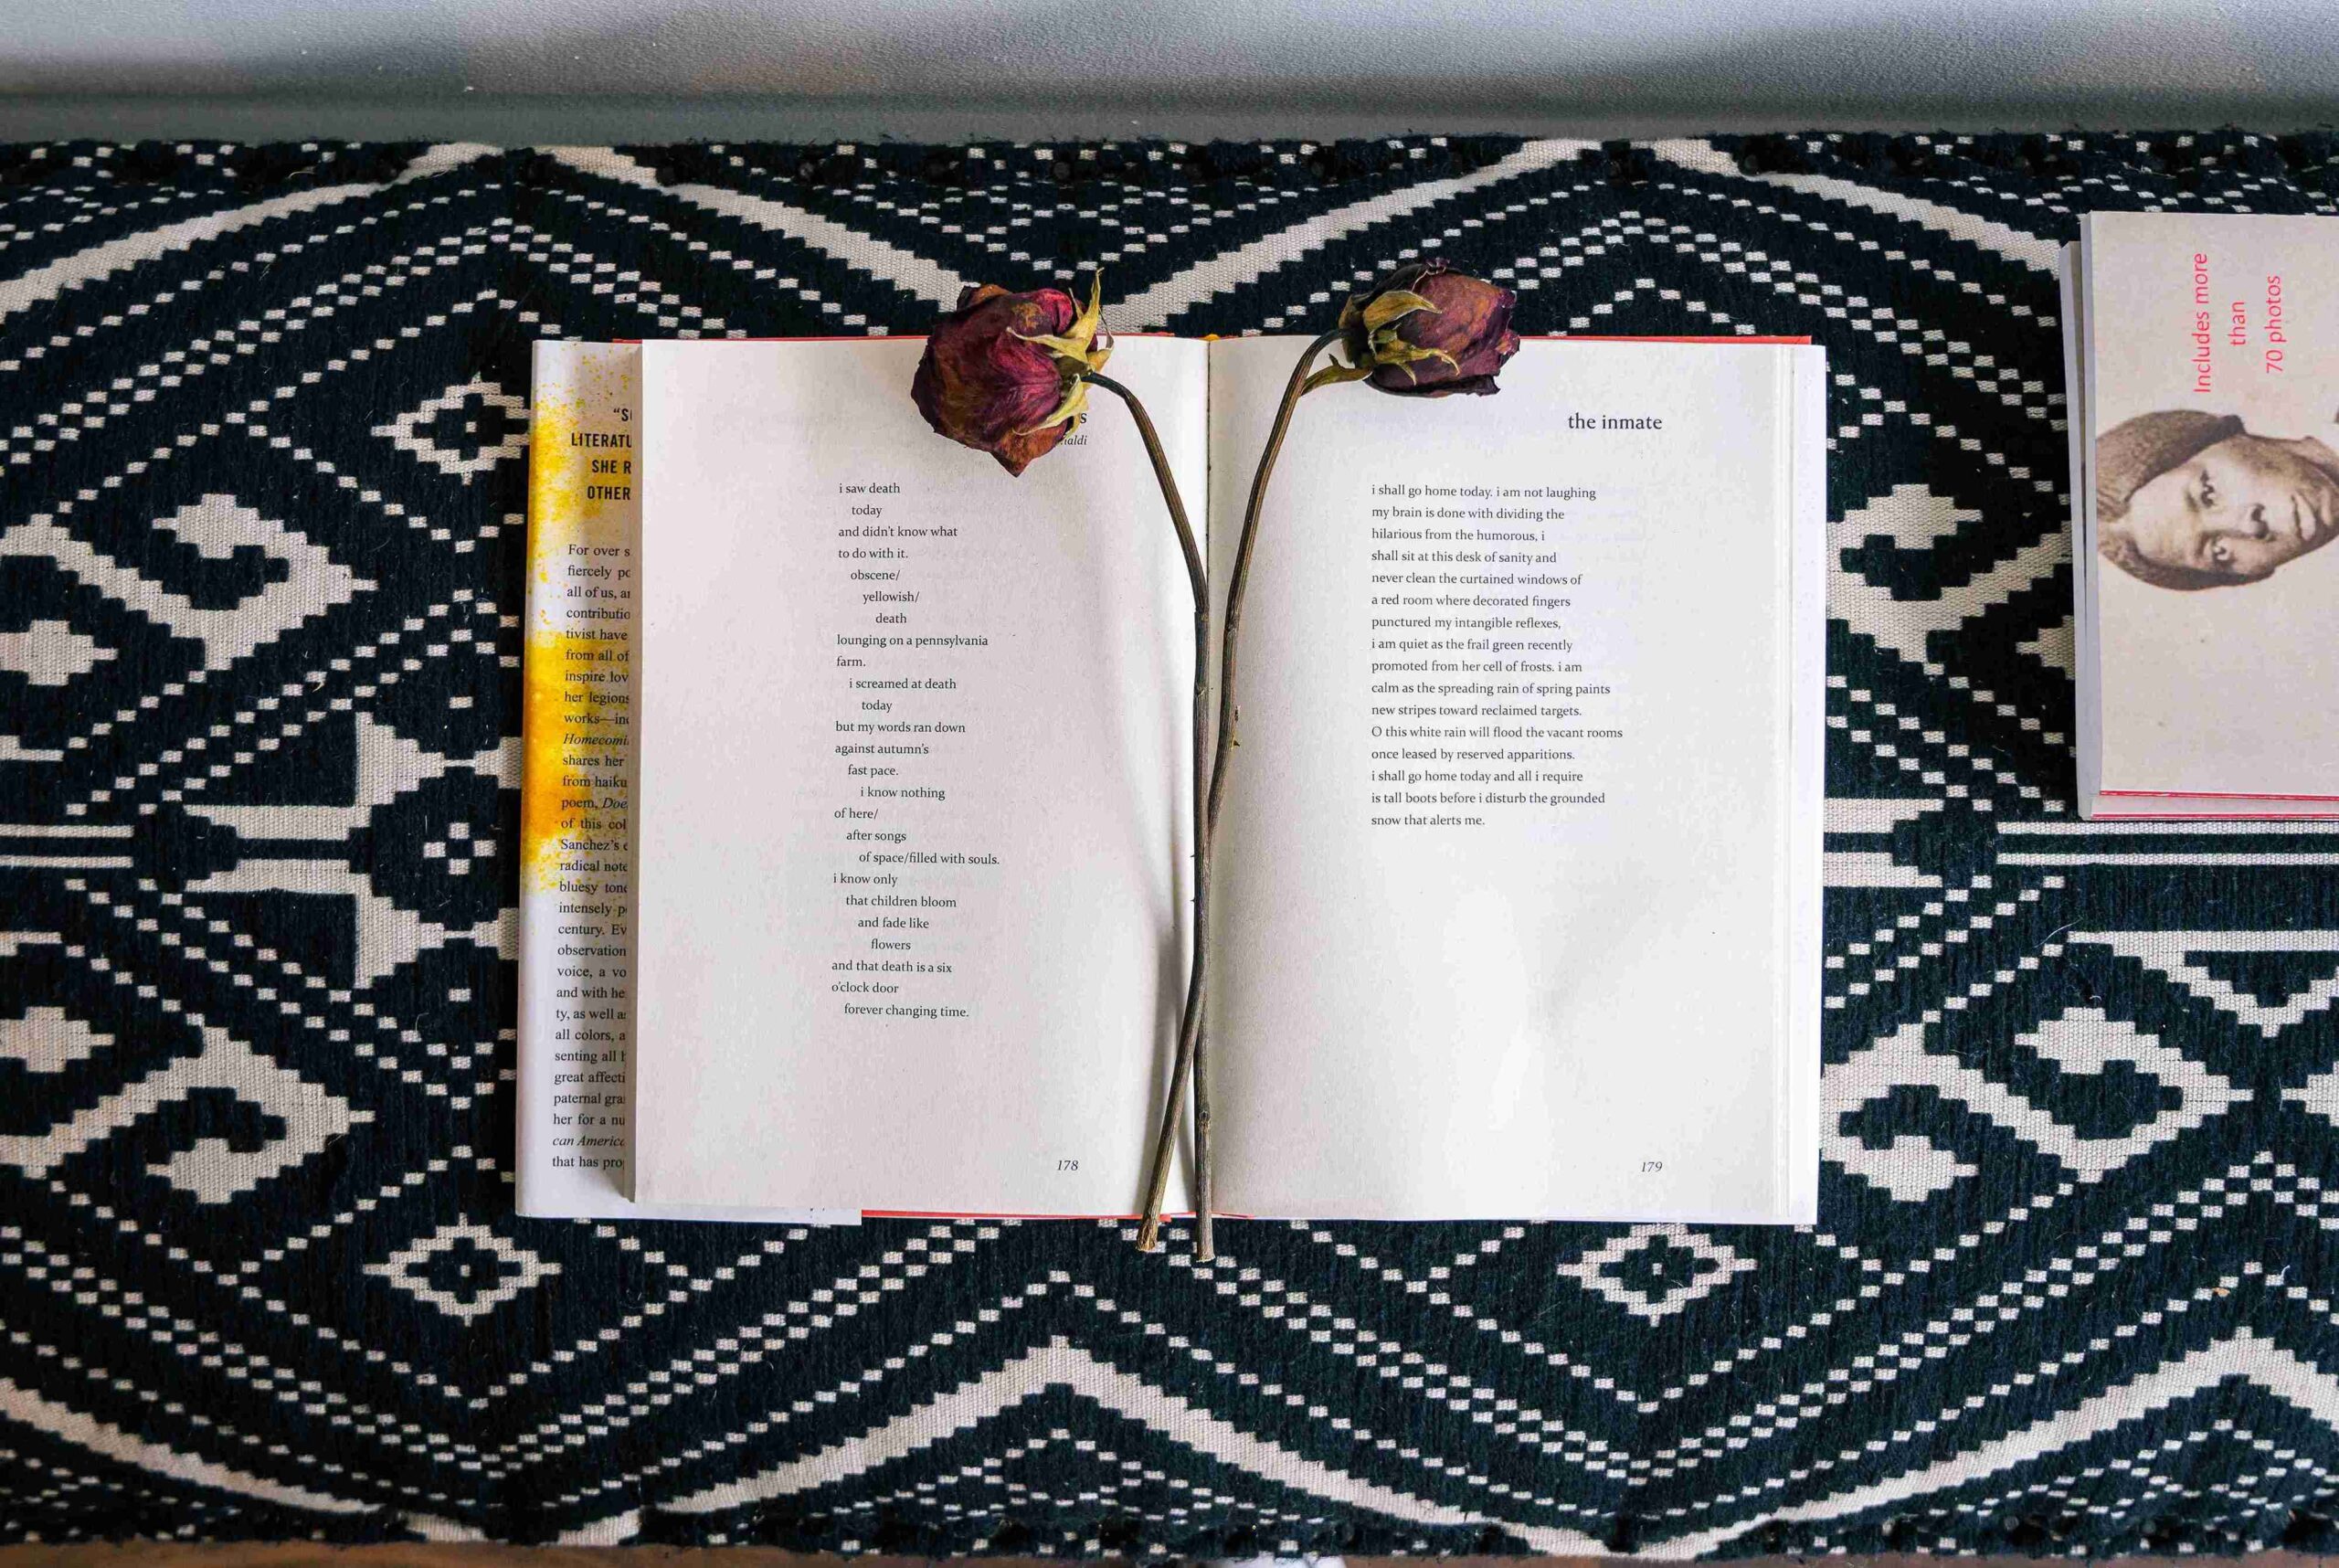 "S
LITERATU
SHE R
OTHER
For over s
fiercely po
all of us, ar
contributio
tivist have
from all of
inspire lov
her legions
works—inc
Homecomi
shares her
from haiku
poem, Doe
of this col
Sanchez's c
radical note
bluesy tone
intensely p
century. Ev
observation
voice, a vo
and with he
ty, as well as
all colors, a
senting all h
great affecti
paternal gra
her for a nu
can America
that has pro
s
naldi
i saw death
today
and didn't know what
to do with it.
obscene/
yellowish/
death
lounging on a pennsylvania
farm.
i screamed at death
today
but my words ran down
against autumn's
fast pace.
i know nothing
of here/
after songs
of space/filled with souls.
i know only
that children bloom
and fade like
flowers
and that death is a six
o'clock door
forever changing time.
178
the inmate
i shall go home today. i am not laughing
my brain is done with dividing the
hilarious from the humorous, i
shall sit at this desk of sanity and
never clean the curtained windows of
a red room where decorated fingers
punctured my intangible reflexes,
i am quiet as the frail green recently
promoted from her cell of frosts. i am
calm as the spreading rain of spring paints
new stripes toward reclaimed targets.
O this white rain will flood the vacant rooms
once leased by reserved apparitions.
i shall go home today and all i require
is tall boots before i disturb the grounded
snow that alerts me.
179
Includes more
than
70 photos